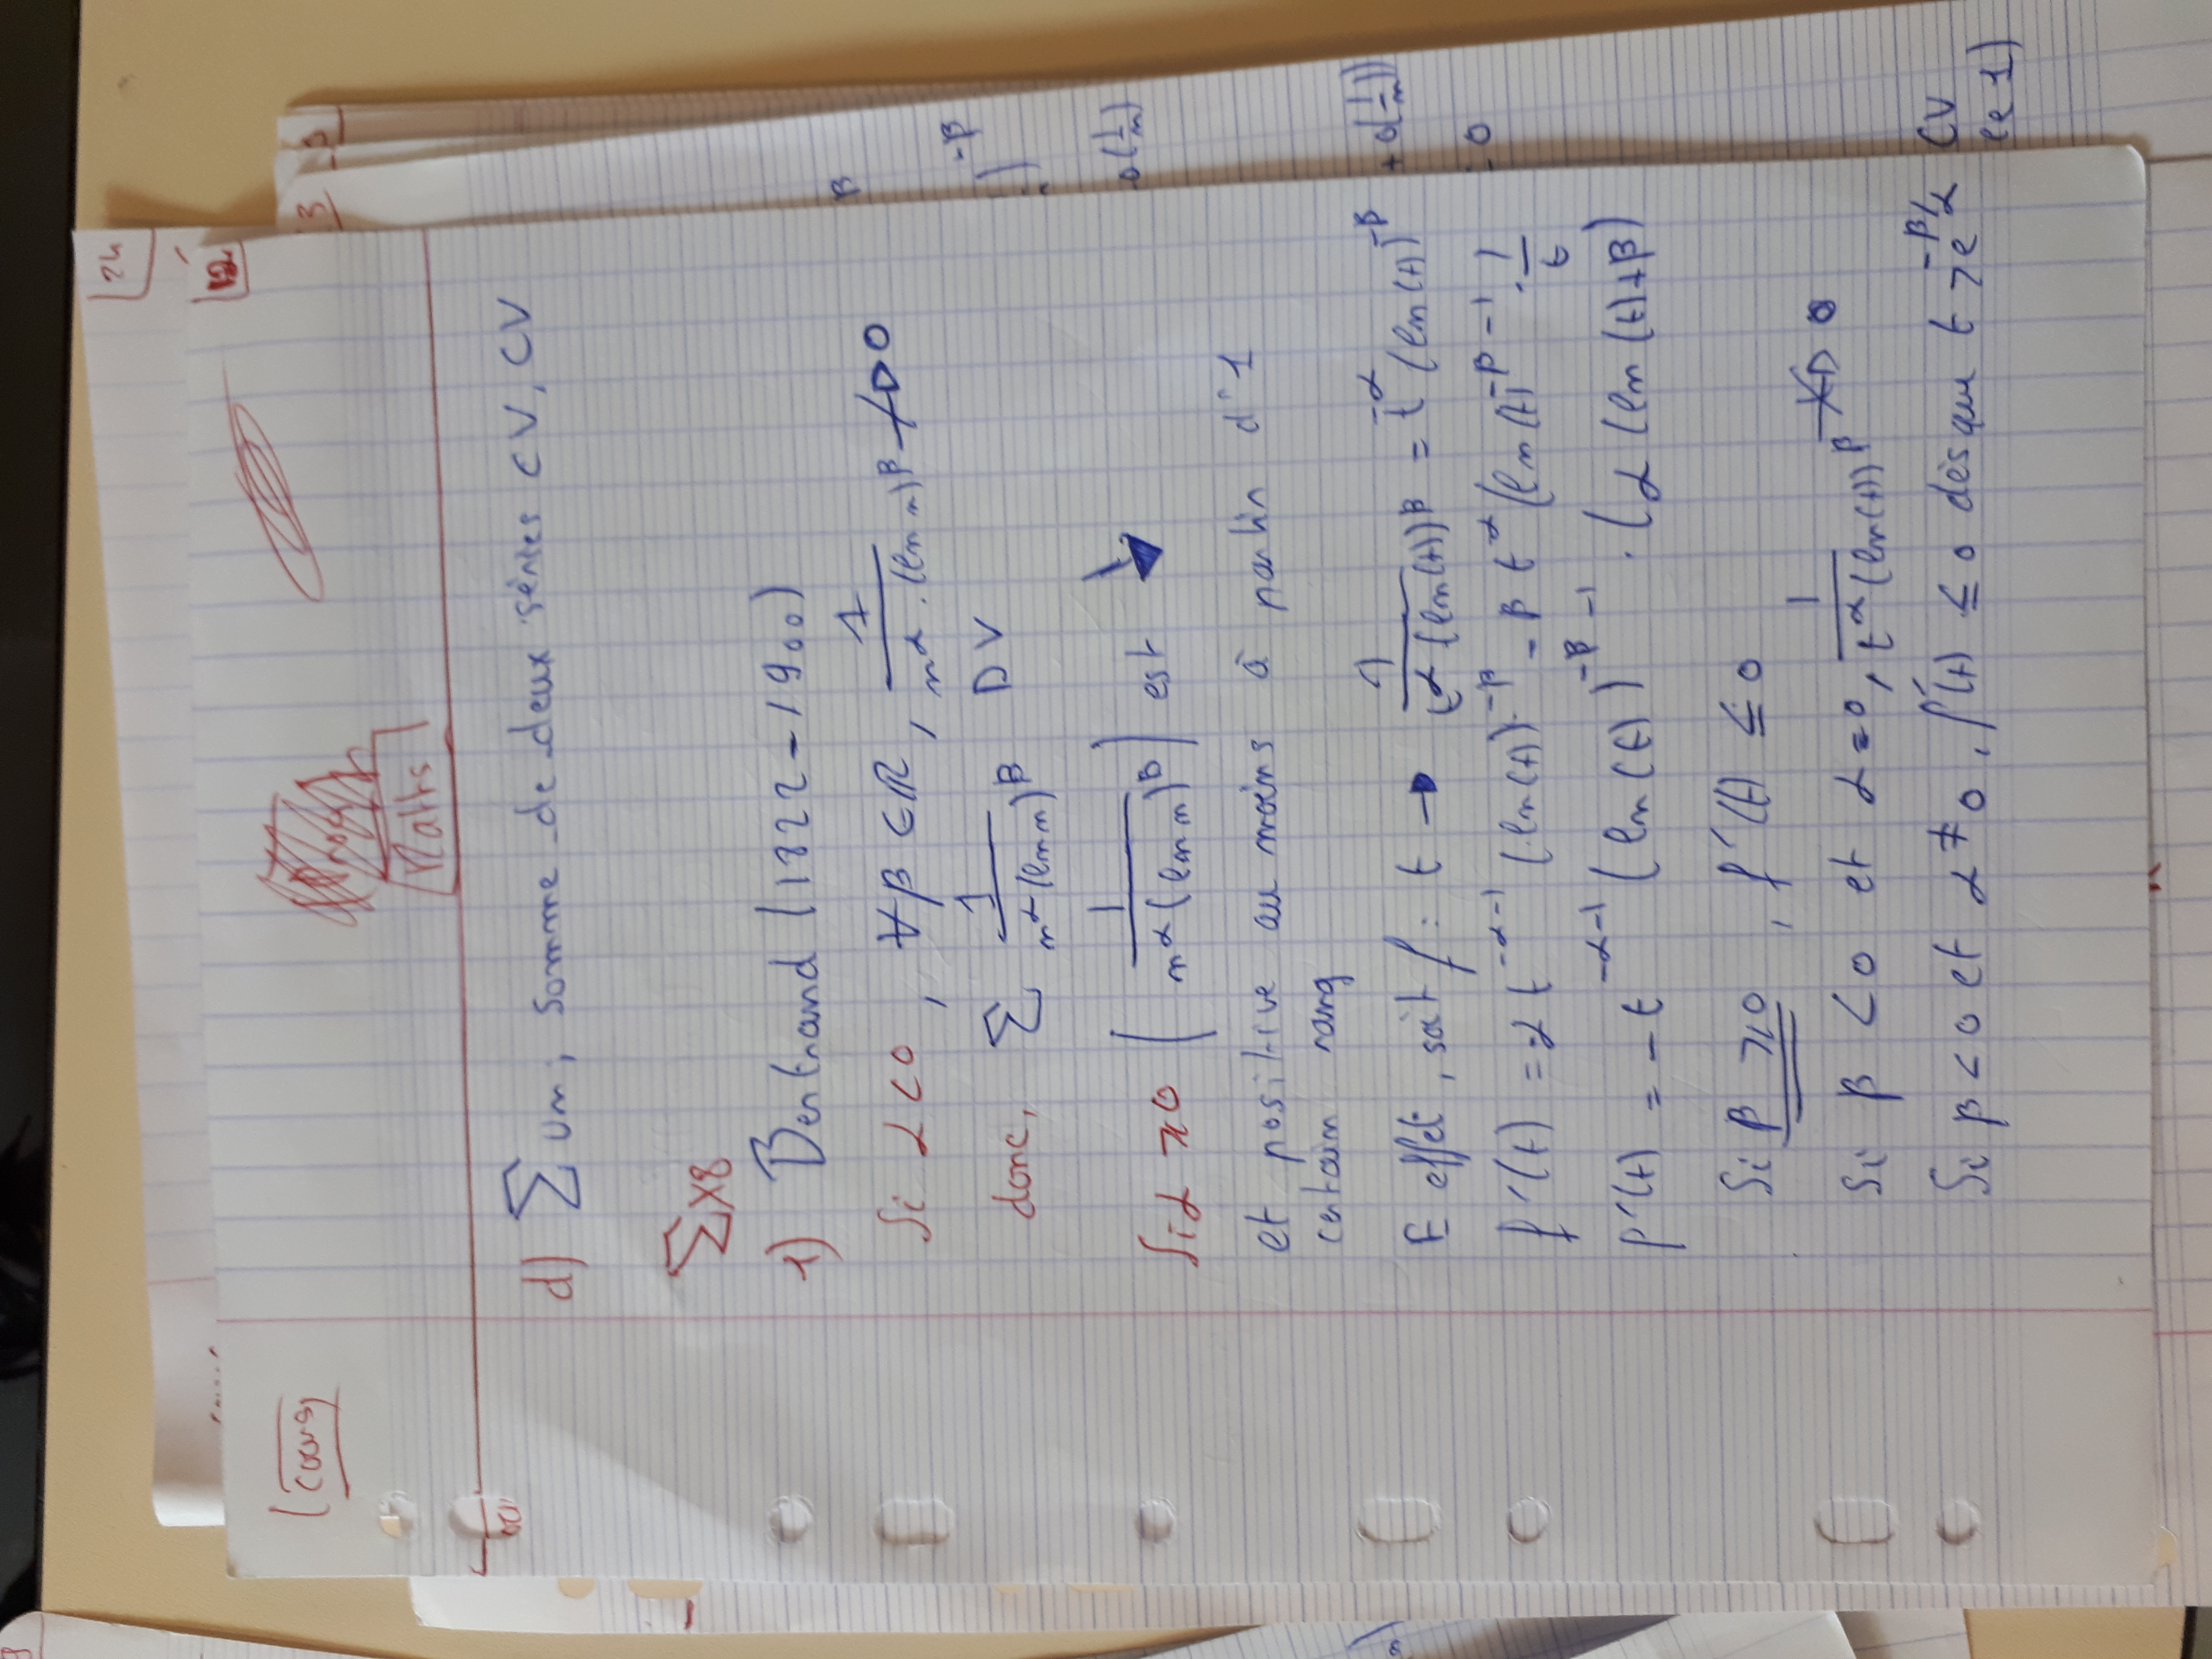 24
12
Cours
Maths
d) ∑ un, somme de deux séries CV, CV
∑x8
1) Bertrand (1822-1900)
Si α<0, ∀β∈R, 1/(n^α.(ln n)^β) -/-> 0
donc, ∑ 1/(n^α(ln n)^β) DV
Si α ⩾0 (1/(n^α(ln n)^β)) est ↘
et positive au moins à partir d'1
certain rang
E effet, soit f: t → 1/(t^α(ln(t))^β) = t^-α(ln(t))^-β
f'(t) = -α t^(-α-1) (ln(t))^-β - β t^α (ln(t))^(-β-1) . 1/t
f'(t) = -t^(-α-1) (ln(t))^(-β-1) . (α (ln(t)+β)
Si β ⩾0, f'(t) ≤ 0
Si β <0 et α=0, 1/(t^α(ln(t))^β) -/-> 0
Si β<0 et α≠0, f'(t) ≤ 0 dès que t >e^(-β/α)
3
β
)^-β
o(1/n)
+ o(1/n))
0
CV